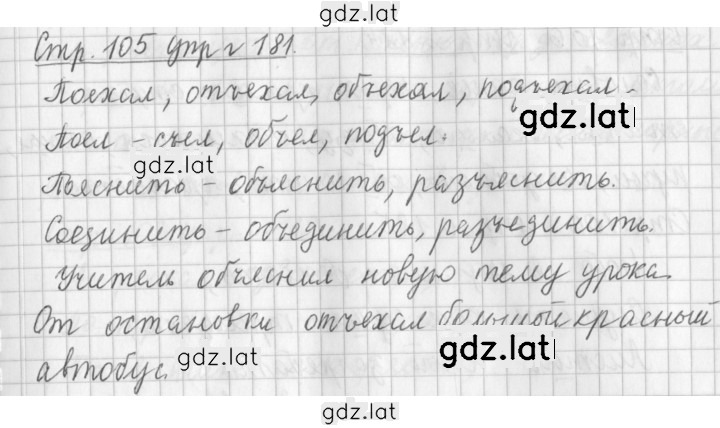 gdz.lat
Стр. 105 упр г 181.
Поехал, отъехал, объехал, подъехал.
gdz.lat
Поел – съел, объел, подъел.
gdz.lat
Пояснить – объяснить, разъяснить.
Соединить – объединить, разъединить.
Учитель объяснил новую тему урока.
От остановки отъехал большой красный
gdz.lat
gdz.lat
автобус.
gdz.lat